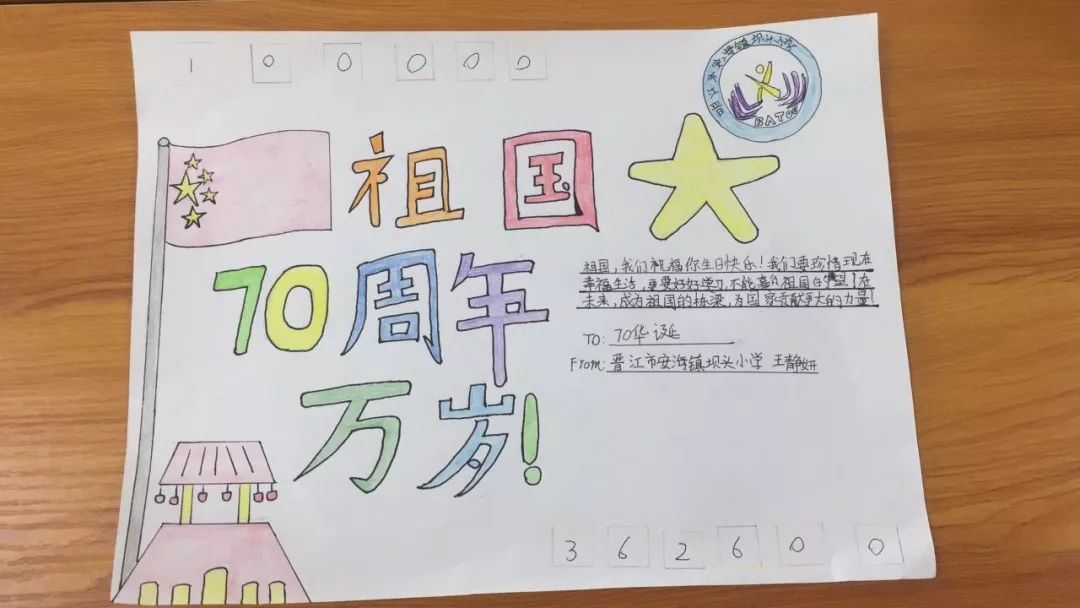 100000
晋江市安海镇坝头小学
BATOU
祖国
70周年
万岁!
祖国，我们祝福你生日快乐！我们要珍惜现在
幸福生活，更要好好学习，不能辜负祖国的期望！在
未来，成为祖国的栋梁，为国家贡献更大的力量！
TO: 70华诞
From: 晋江市安海镇坝头小学 王静妍
362600